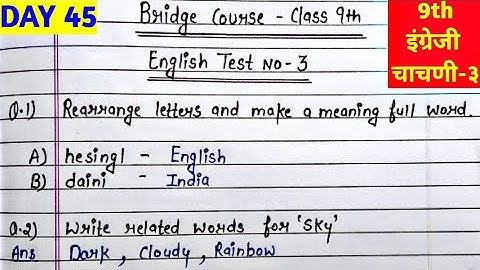 DAY 45
Bridge Course - Class 9th
English Test No-3
9th
इंग्रेजी
चाचणी-३
Q.1) Rearrange letters and make a meaning full word.
A) hesingl - English
B) daini - India
Q.2) Write related words for 'Sky'
Ans Dark, Cloudy, Rainbow